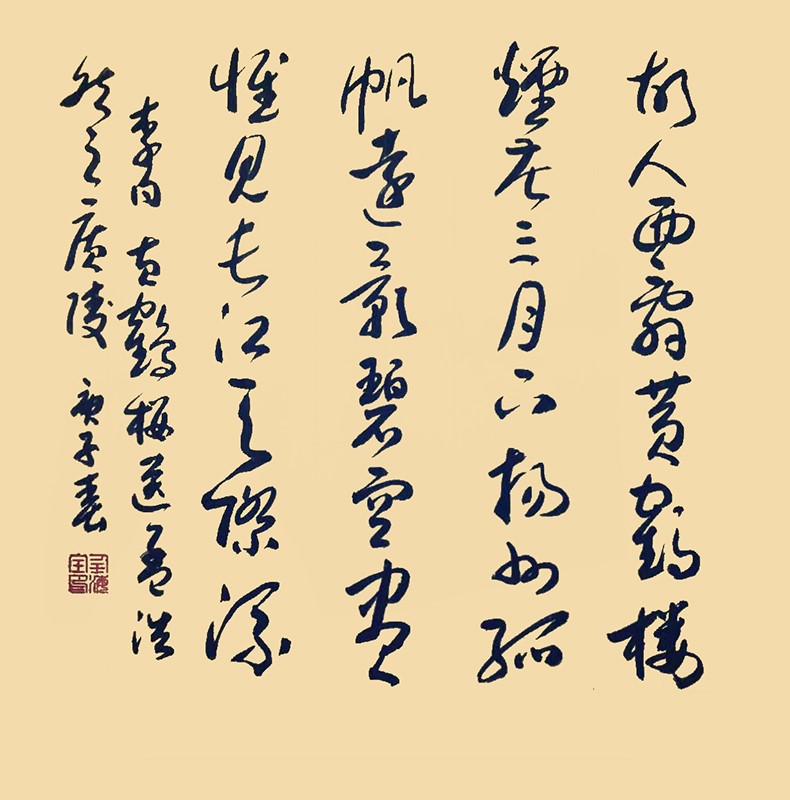 故人西辭黄鶴樓
煙花三月下揚州孤
帆遠影碧空盡
惟見長江天際流
李白黄鶴樓送孟浩
然之廣陵 庚子春